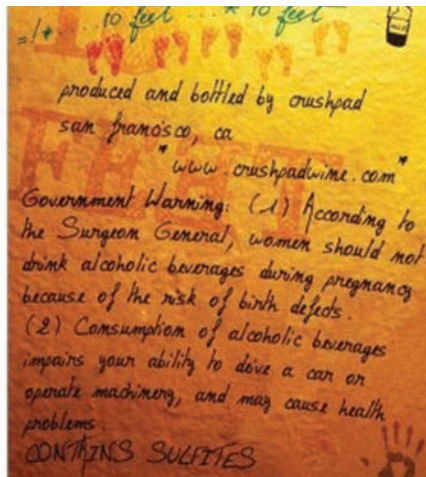 =!* .... 10 feet ... * 10 feet
produced and bottled by crushpad
san francisco, ca
"www.crushpadwine.com"
FEET
Government Warning: (1) According to
the Surgeon General, women should not
drink alcoholic beverages during pregnancy
because of the risk of birth defects.
(2) Consumption of alcoholic beverages
impairs your ability to drive a car or
operate machinery, and may cause health
problems.
CONTAINS SULFITES